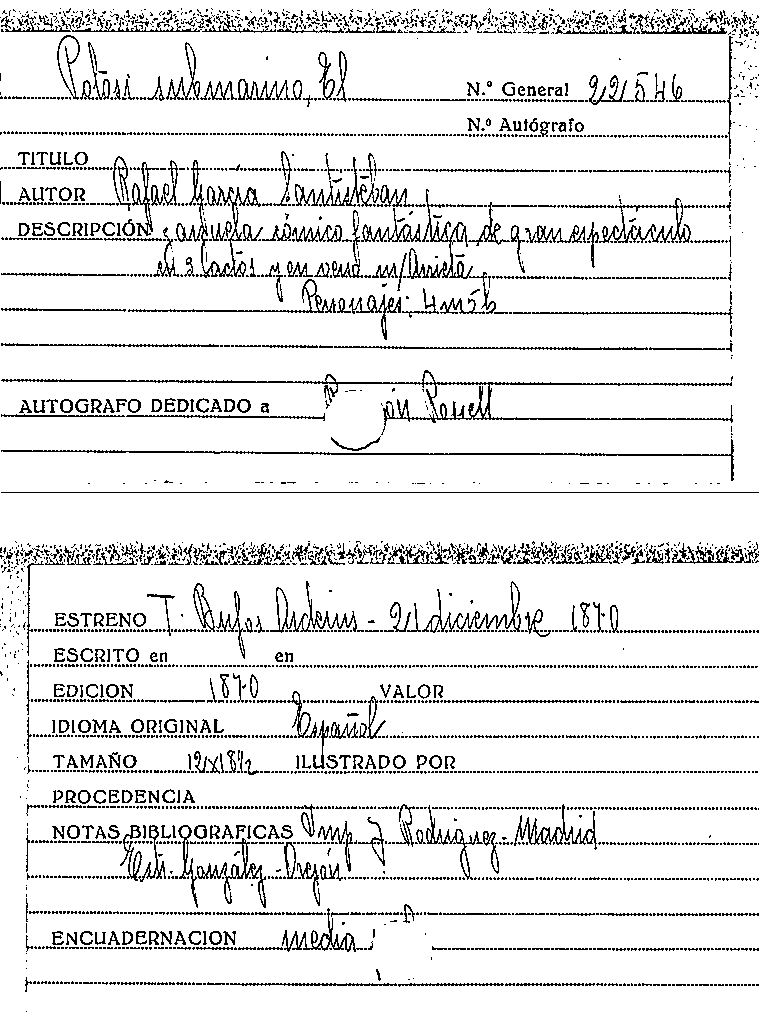 Potosi submarino, El
N.º General 22546
N.º Autógrafo
TITULO
AUTOR Rafael García Santisteban
DESCRIPCIÓN zarzuela cómico fantástica de gran espectáculo
en 3 actos y en verso m/Arrieta
Personajes: 4m5h
AUTOGRAFO DEDICADO a Rosell
ESTRENO T. Bufos Arderius - 21 diciembre 1870
ESCRITO en en
EDICION 1870 VALOR
IDIOMA ORIGINAL Español
TAMAÑO 12x18½ ILUSTRADO POR
PROCEDENCIA
NOTAS BIBLIOGRAFICAS Imp J Rodriguez - Madrid
Estr. González - Orejón
ENCUADERNACION media